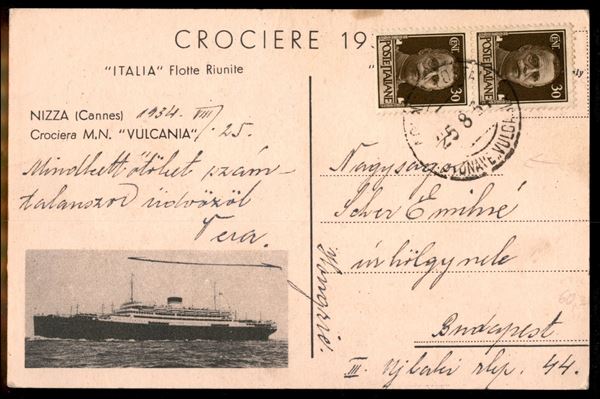 CROCIERE 19
"ITALIA" Flotte Riunite
NIZZA (Cannes) 1934. VIII/25.
Crociera M.N. "VULCANIA"
Mindkettőtöket szám-
talanszor üdvözöl
Vera.
CENT. 30
POSTE ITALIANE
CENT. 30
POSTE ITALIANE
25.8.3
Nagyságos
Scher Emilné
úrhölgynek
Budapest.
III. Ujlaki rkp. 44.